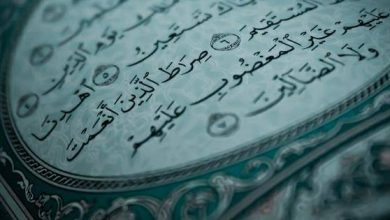 يَوْمِ الدِّينِ
نَسْتَعِينُ ٥ اهْدِنَا
الْمُسْتَقِيمَ ٦ صِرَاطَ الَّذِينَ أَنْعَمْتَ
عَلَيْهِمْ غَيْرِ الْمَغْضُوبِ عَلَيْهِمْ
وَلَا الضَّالِّينَ ٧